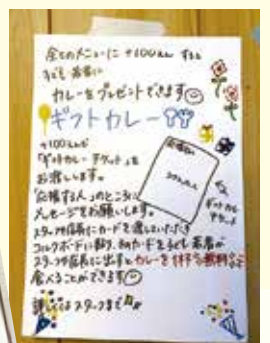 全てのメニューに +100えん すると
子ども 若者に
カレーをプレゼントできます
ギフトカレー
+100えんで
「ギフトカレー チケット」を
お渡しします。
「応援する人」のところに
メッセージをお願いします。
スタッフや店長にカードを渡していただき
コルクボードに貼り、そのカードを子ども 若者が
スタッフや店長に出すとカレーを1杯無料で
食べることができます
詳しくはスタッフまで
ギフトカレー
チケット